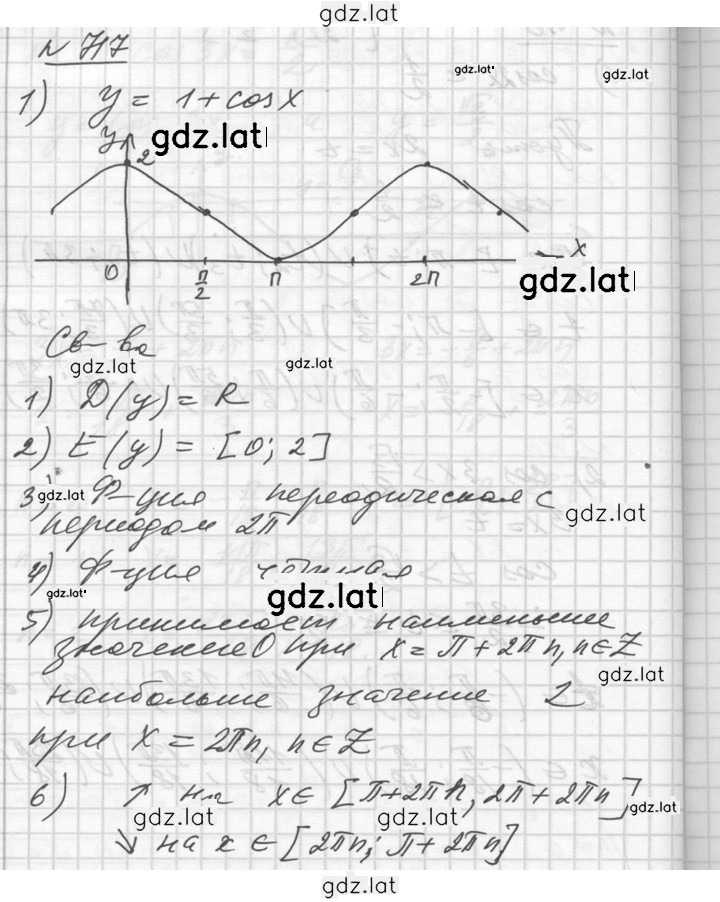 gdz.lat
№ 717
gdz.lat
gdz.lat
1) y = 1 + cosx
gdz.lat
y
2
0 π/2 π 2π x
gdz.lat
Св-ва
gdz.lat
gdz.lat
1) D(y) = R
2) E(y) = [0; 2]
3) Ф-ция переодическая с
gdz.lat
gdz.lat
периодом 2π
4) Ф-ция чётная
gdz.lat
gdz.lat
5) принимает наименьшее
значение 0 при x = π + 2πn, n∈Z
gdz.lat
наибольше значение 2
при x = 2πn, n∈Z
6) ↑ на x∈ [π+2πn, 2π+2πn]
gdz.lat
gdz.lat
gdz.lat
↘ на x∈ [2πn; π+2πn]
gdz.lat